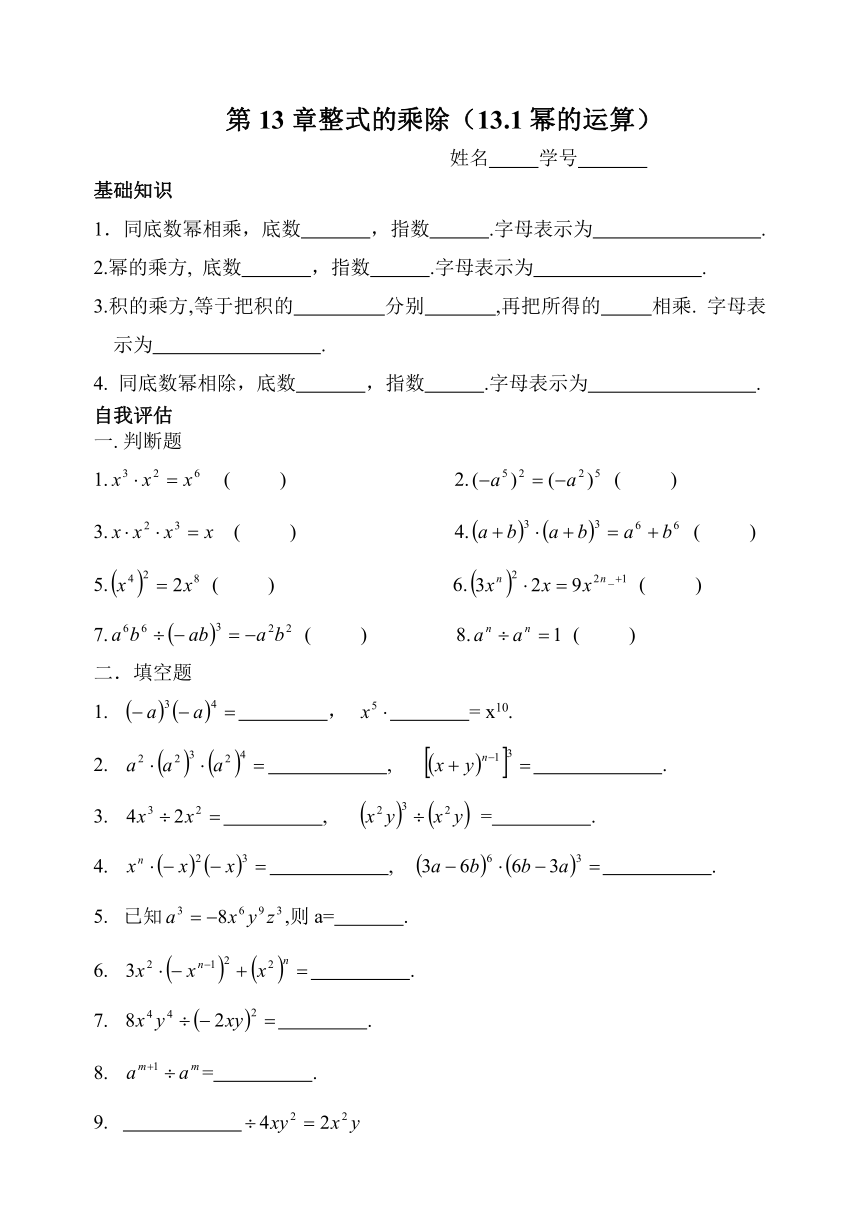 第13章整式的乘除（13.1幂的运算）
姓名_____学号_______
基础知识
1．同底数幂相乘，底数_______，指数______.字母表示为_________________.
2.幂的乘方, 底数_______，指数______.字母表示为_________________.
3.积的乘方,等于把积的_________分别_______,再把所得的_____相乘. 字母表
示为_________________.
4. 同底数幂相除，底数_______，指数______.字母表示为_________________.
自我评估
一. 判断题
1. x³·x² = x⁶ (    ) 2. (−a⁵)² = (−a²)⁵ (    )
3. x·x²·x³ = x (    ) 4. (a+b)³·(a+b)³ = a⁶+b⁶ (    )
5. (x⁴)² = 2x⁸ (    ) 6. (3xⁿ)²·2x = 9x²ⁿ₋⁺¹ (    )
7. a⁶b⁶÷(−ab)³ = −a²b² (    ) 8. aⁿ÷aⁿ = 1 (    )
二．填空题
1. (−a)³(−a)⁴ = _________， x⁵·________= x¹⁰.
2. a²·(a²)³·(a²)⁴ = ____________, [(x+y)ⁿ⁻¹]³ = _____________.
3. 4x³÷2x² = __________, (x²y)³÷(x²y) =__________.
4. xⁿ·(−x)²(−x)³ = ____________, (3a−6b)⁶·(6b−3a)³ = ___________.
5. 已知a³ = −8x⁶y⁹z³,则a=_______.
6. 3x²·(−xⁿ⁻¹)²+(x²)ⁿ = __________.
7. 8x⁴y⁴÷(−2xy)² = _________.
8. aᵐ⁺¹÷aᵐ=__________.
9. ____________÷4xy² = 2x²y